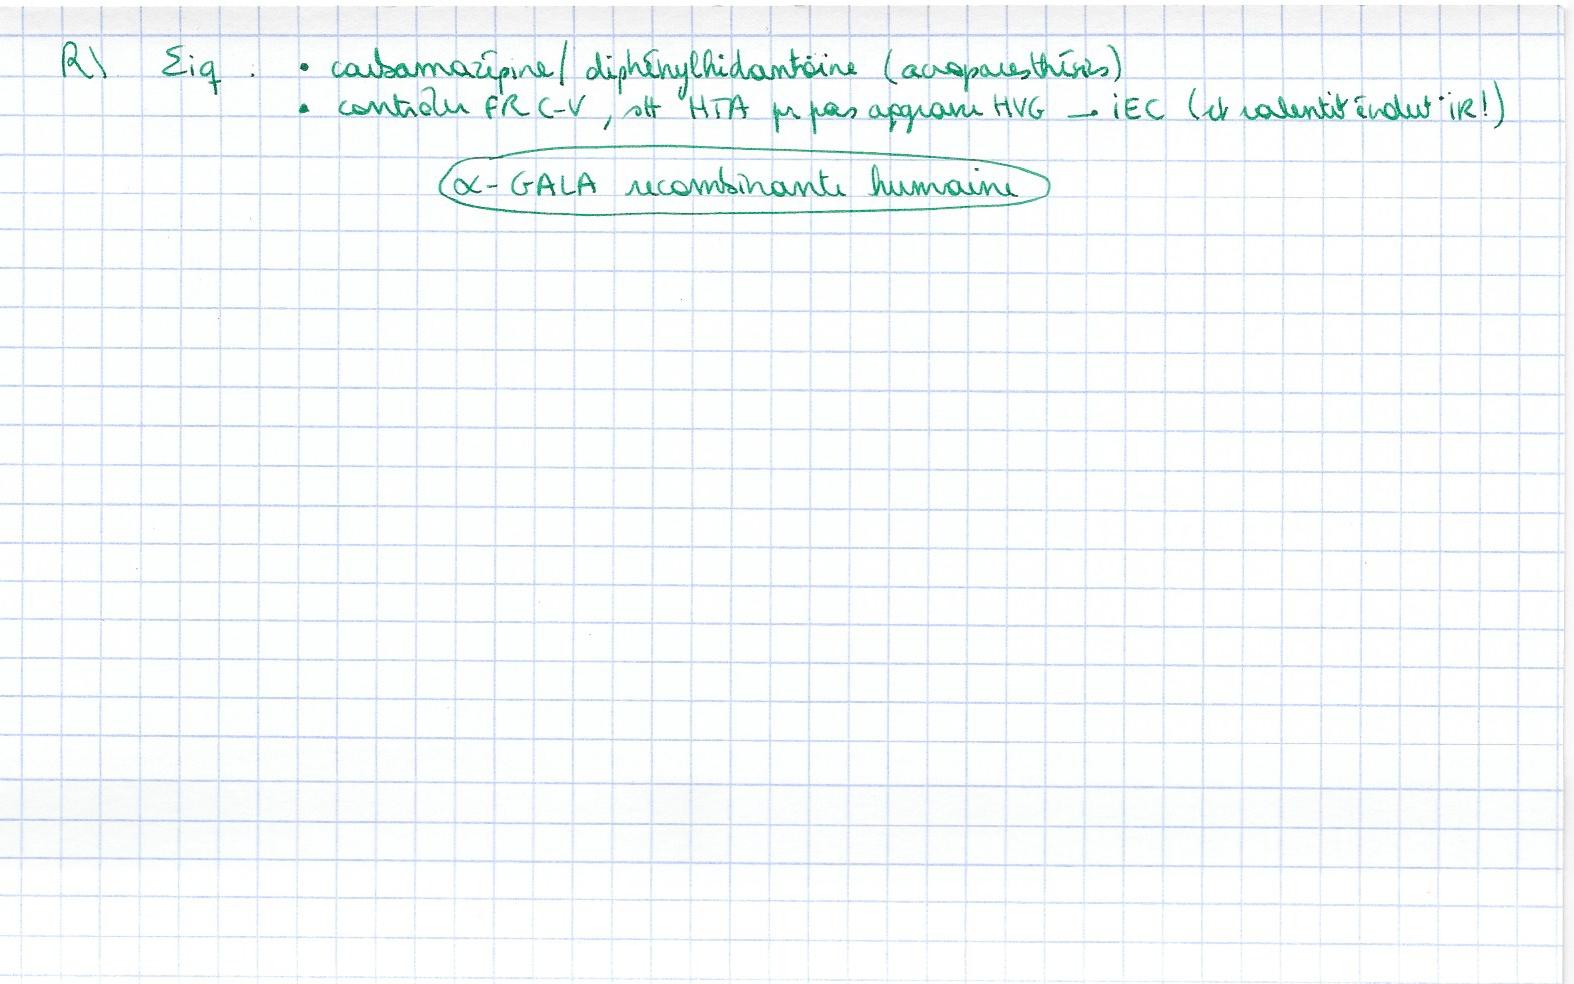 R\ Σiq : • carbamazépine / diphénylhidantoïne (acroparesthésies)
• contrôler FR C-V, stt HTA pr pas aggraver HVG → iEC (et ralentit évolut° iR!)
α-GALA recombinante humaine